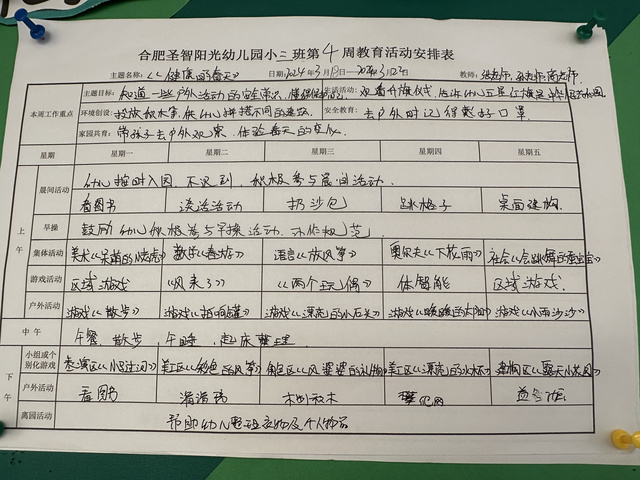 合肥圣智阳光幼儿园小三班第4周教育活动安排表
主题名称:《健康的春天》 日期:2024年3月18日—2024年3月22日 教师:
本周工作重点
主题目标: 知道一些户外活动的安全常识,懂得保护自己 生活活动: 观看升旗仪式,
环境创设: 投放积木等,供幼儿拼搭不同的建筑 安全教育: 去户外时记得戴好口罩
家园共育: 带孩子去户外观察,体验春天的变化
星期 星期一 星期二 星期三 星期四 星期五
上午
晨间活动 幼儿按时入园,不迟到,积极参与晨间活动.
看图书 谈话活动 扔沙包 跳格子 桌面建构.
早操 鼓励幼儿积极参与早操活动,
集体活动 美术《 》 数学《春游》 语言《放风筝》 奥尔夫《下花雨》 社会《 》
游戏活动 区域游戏 《风来了》 《两个玩偶》 体智能 区域游戏.
户外活动 游戏《散步》 游戏《 》 游戏《漂亮的小石头》 游戏《暖暖的太阳》 游戏《小雨沙沙》
中午 午餐,散步,午睡,起床整理.
下午
小组或个别化游戏 表演区《 》 美工区《彩色的风筝》 角色区《风婆婆的礼物》 美工区《漂亮的水杯》 建构区《 》
户外活动 看图书 滑滑梯 木制积木
离园活动 帮助幼儿整理衣物及个人物品